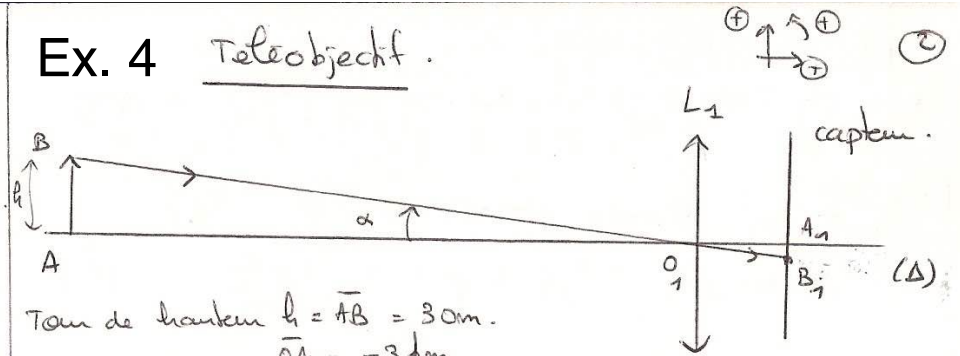 Ex. 4 Téléobjectif.
⊕ ⊕ ⊕
2
L1
capteur.
B
h
α
A
O1
A1
B1
(Δ)
Tour de hauteur h = AB = 30m.
OA = -3km